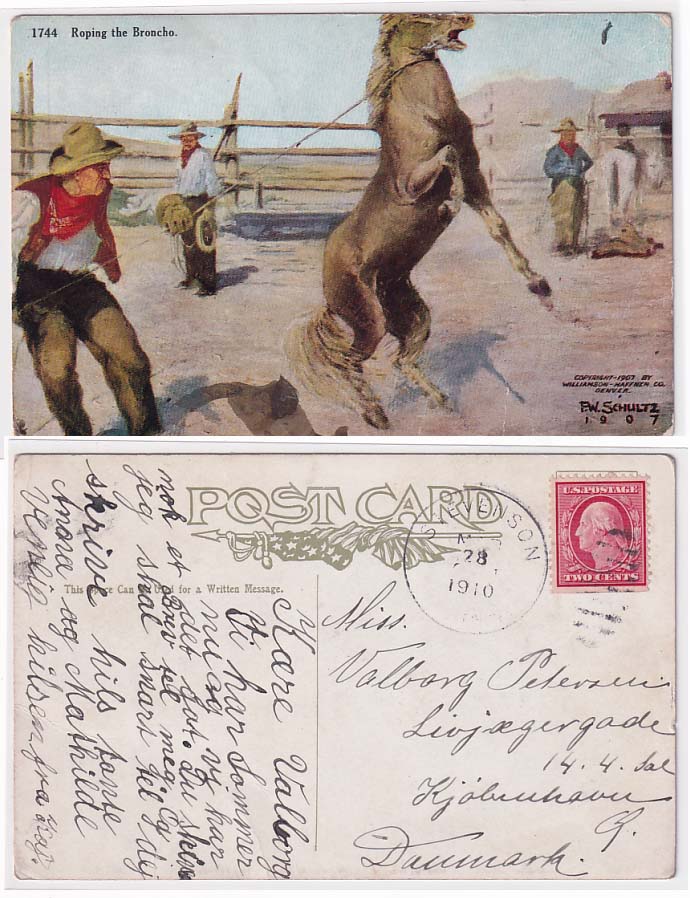 1744 Roping the Broncho.
COPYRIGHT-1907 BY
WILLIAMSON-HAFFNER CO.
DENVER
F.W. SCHULTZ
1907
POST CARD
This Space Can Be Used for a Written Message.
STEVENSON
28
1910
U.S. POSTAGE
TWO CENTS
Miss.
Valborg Petersen
Livjægergade
14. 4. Sal
Kjøbenhavn
Danmark.
Kære Valborg
Vi har Sommer
nu og vi har
det godt. Du skrive
nok et brev til meg. Og
jeg skal snart til dig
skrive hils tante
Andrea og Mathilde
Venlig hilsen fra Kaj.